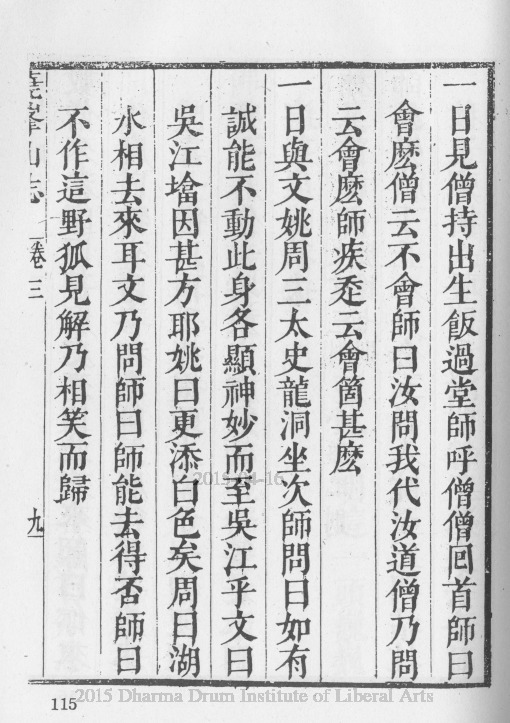 一日見僧持出生飯過堂師呼僧僧回首師曰
會麽僧云不會師曰汝問我代汝道僧乃問
云會麽師疾赱云會箇甚麽
一日與文姚周三太史龍洞坐次師問曰如有
誠能不動此身各顯神妙而至吳江乎文曰
吳江墖因甚方耶姚曰更添白色矣周曰湖
水相去來耳文乃問師曰師能去得否師曰
不作這野狐見解乃相笑而歸
堯峯山志 卷三 九
2015-04-16
115
2015 Dharma Drum Institute of Liberal Arts